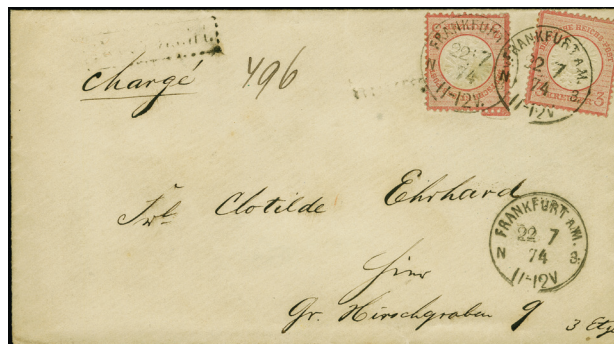 chargé 496
FRANKFURT A.M.
22 7
74
N 3.
11-12V
FRANKFURT A.M.
22 7
74
N 3.
11-12V
Frl. Clotilde Ehrhard
FRANKFURT A.M.
22 7
N 74 3.
11-12V
Hier
Gr. Hirschgraben 9
3 Etg